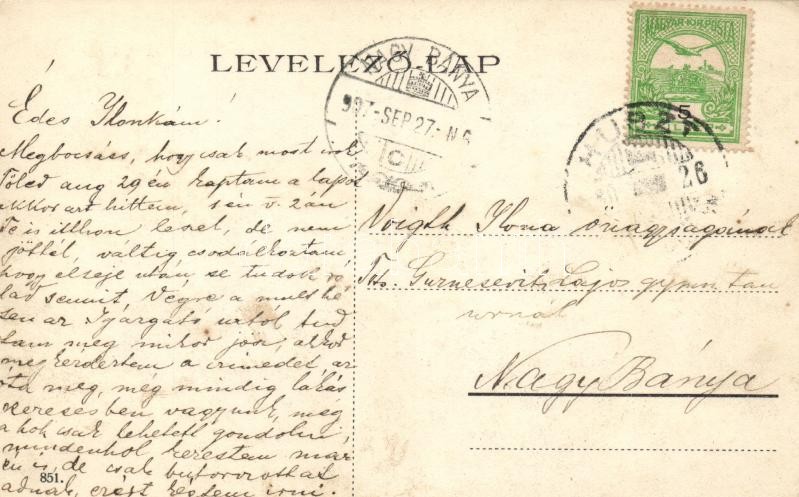 LEVELEZŐ-LAP
MAGYAR KIR. POSTA
5
NAGY BÁNYA
907 SEP 27
HUSZT
26
Édes Ilonkám!
Megbocsáss, hogy csak most irok
Tőled aug 29én kaptam a lapot
akkor azt hittem, s én v. 2án
Te is itthon leszel, de nem
jöttél, váltig csodálkoztam,
hogy elseje után se tudok ró
lad semmit, Végre a mult hé
ten az urtol tud
tam meg mikor jösz, akkor
megkérdeztem a cimedet az
óta meg, meg mindig lakás
keresésben vagyunk, még
a hol csak lehetett gondolni,
mindenhol kerestem már
én is, de csak butorozottat
adnak, ezért késtem irni.
851.
Voigth Ilona önagyságának
Lajos gymn tan
urnál
Nagy Bánya